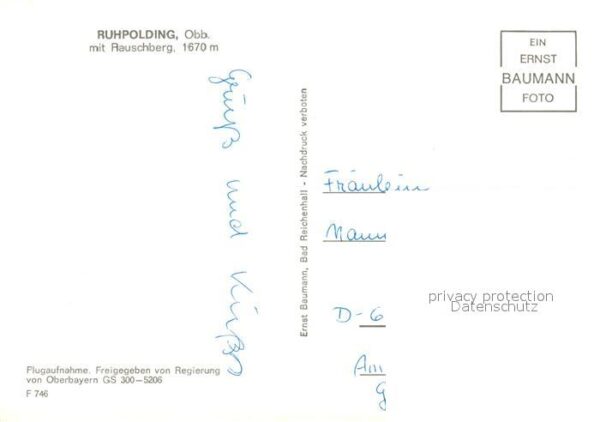 RUHPOLDING, Obb.
mit Rauschberg, 1670 m
EIN
ERNST
BAUMANN
FOTO
Gruß und Küße
Ernst Baumann, Bad Reichenhall - Nachdruck verboten
Fräulein
Mann
D-6
Am
g
privacy protection
Datenschutz
Flugaufnahme. Freigegeben von Regierung
von Oberbayern GS 300-5206
F 746